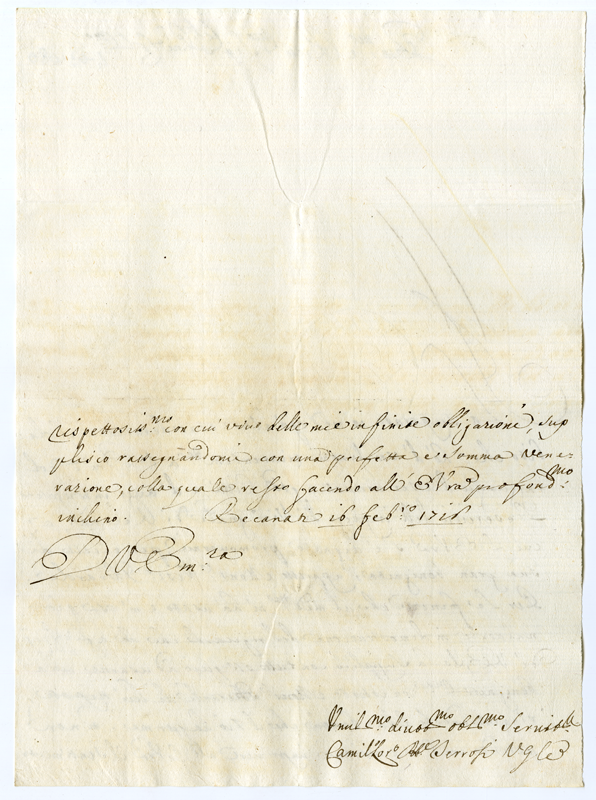 rispettosiss.mo con cui vivo delle mie infinite obligazioni, sup
plisco rassegnandomi con una perfetta e somma vene-
razione, colla quale resto facendo all' E Vra profond.mo
inchino. Recanati 16 feb.ro 1716
D V. Em.za
Umil.mo divot.mo obl.mo Servit.
Camillo